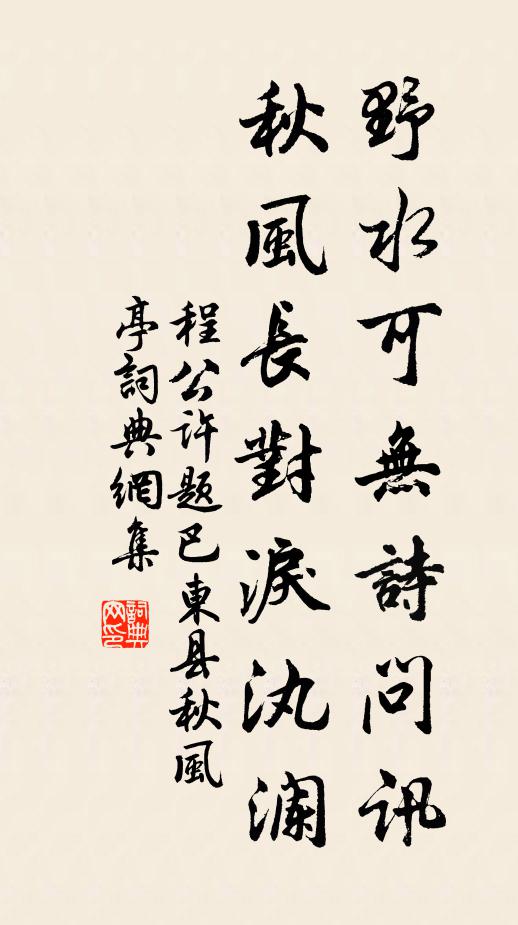 野水可無詩問訊
秋風長對淚汍瀾
程公许题巴東县秋風
亭詞典網集
詞典网印